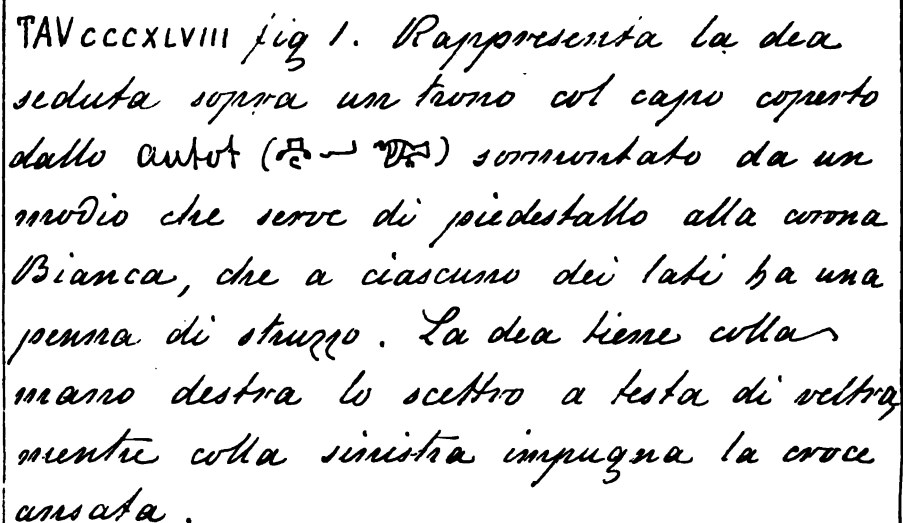 TAV CCCXLVIII fig 1. Rappresenta la dea
seduta sopra un trono col capo coperto
dallo autot () sormontato da un
modio che serve di piedestallo alla corona
Bianca, che a ciascuno dei lati ha una
penna di struzzo. La dea tiene colla
mano destra lo scettro a testa di veltra,
mentre colla sinistra impugna la croce
ansata.